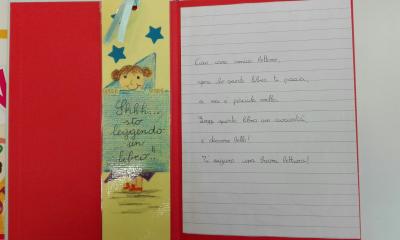 Shhh...
sto
leggendo
un
libro!!
Ciao caro amico lettore,
spero che questo libro ti piaccia,
a me è piaciuto molto.
Leggi questo libro con curiosità
e diventa bello!
Ti auguro una buona lettura!